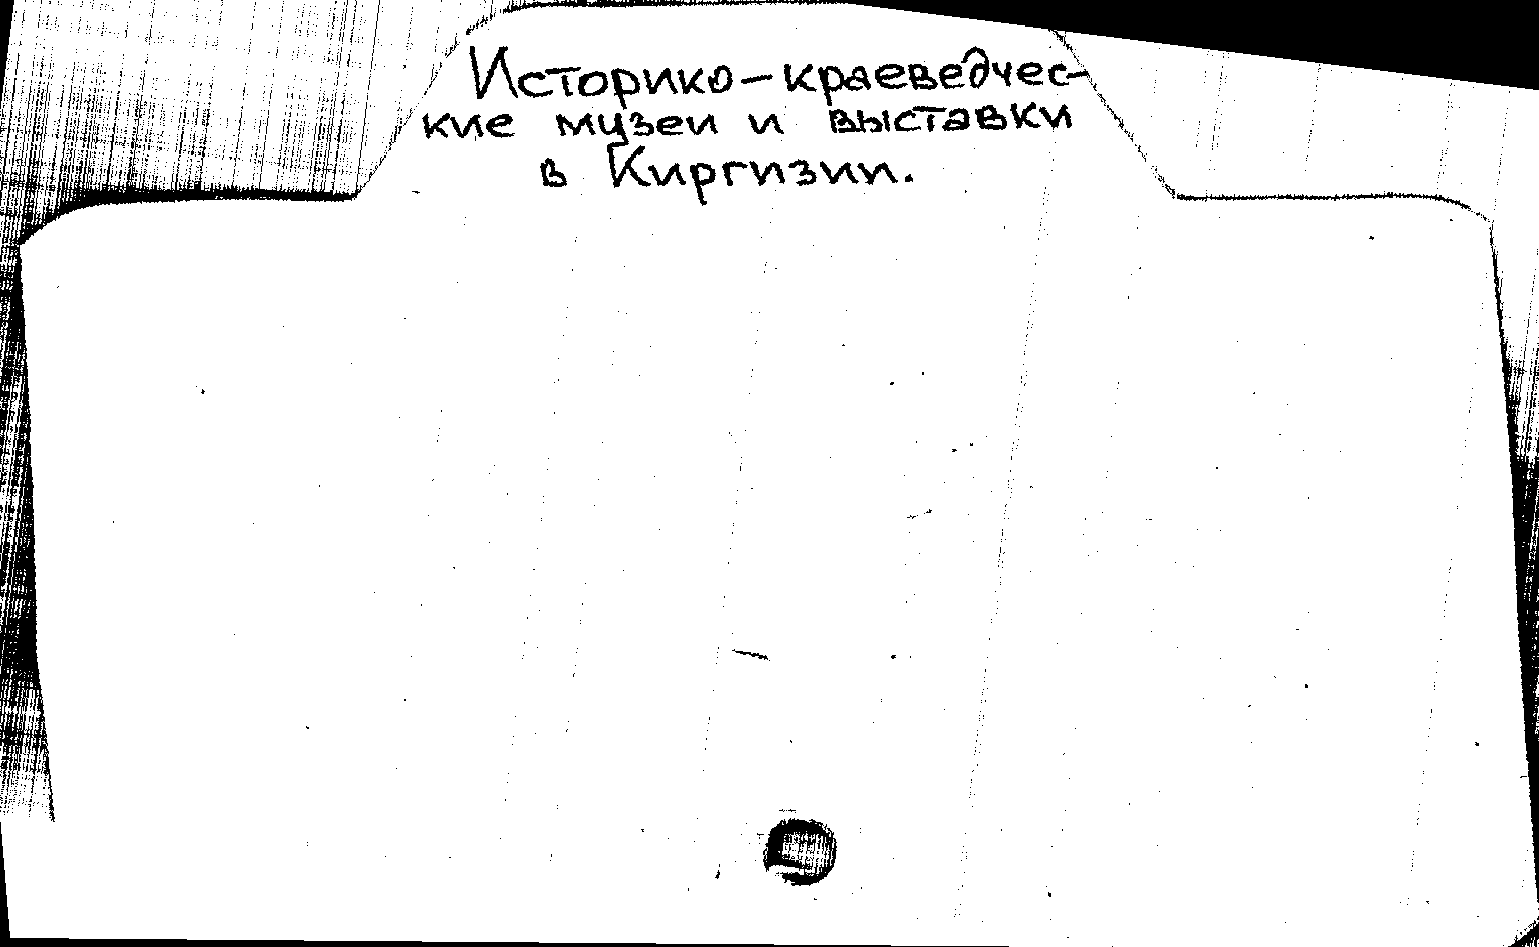 Историко-краеведчес-
кие музеи и выставки
в Киргизии.